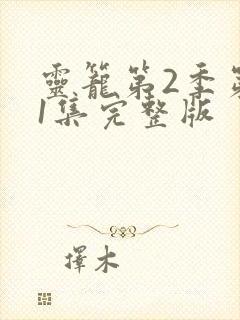 靈籠第2季第
1集完整版
擇木